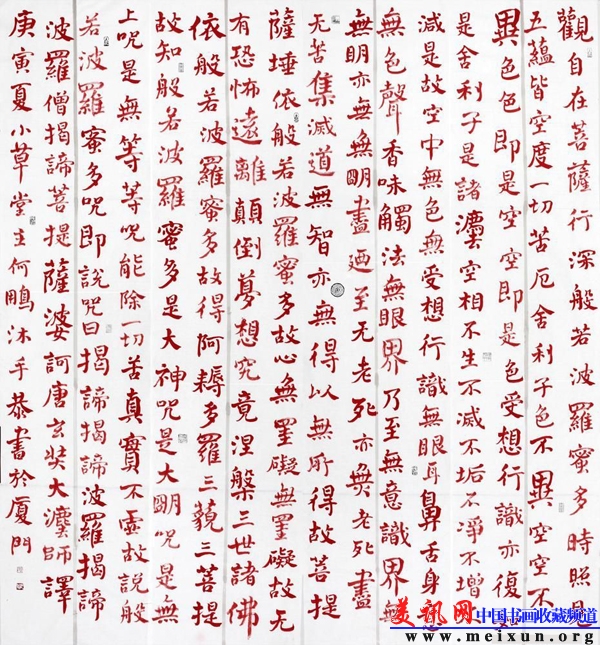 觀自在菩薩行深般若波羅蜜多時照見
五蘊皆空度一切苦厄舍利子色不異空空不
異色色即是空空即是色受想行識亦復如
是舍利子是諸灋空相不生不滅不垢不淨不增
減是故空中無色無受想行識無眼耳鼻舌身
無色聲香味觸法無眼界乃至無意識界無
無明亦無無明盡迺至无老死亦無老死盡
无苦集滅道無智亦無得以無所得故菩提
薩埵依般若波羅蜜多故心無罣礙無罣礙故无
有恐怖遠離顛倒夢想究竟涅槃三世諸佛
依般若波羅蜜多故得阿耨多羅三藐三菩提
故知般若波羅蜜多是大神咒是大明咒是無
上咒是無等等咒能除一切苦真實不虛故說般
若波羅蜜多咒即說咒曰揭諦揭諦波羅揭諦
波羅僧揭諦菩提薩婆訶唐玄奘大灋師譯
庚寅夏小草堂主何鵬沐手恭書於廈門
美讯网 中国书画收藏频道
www.meixun.org